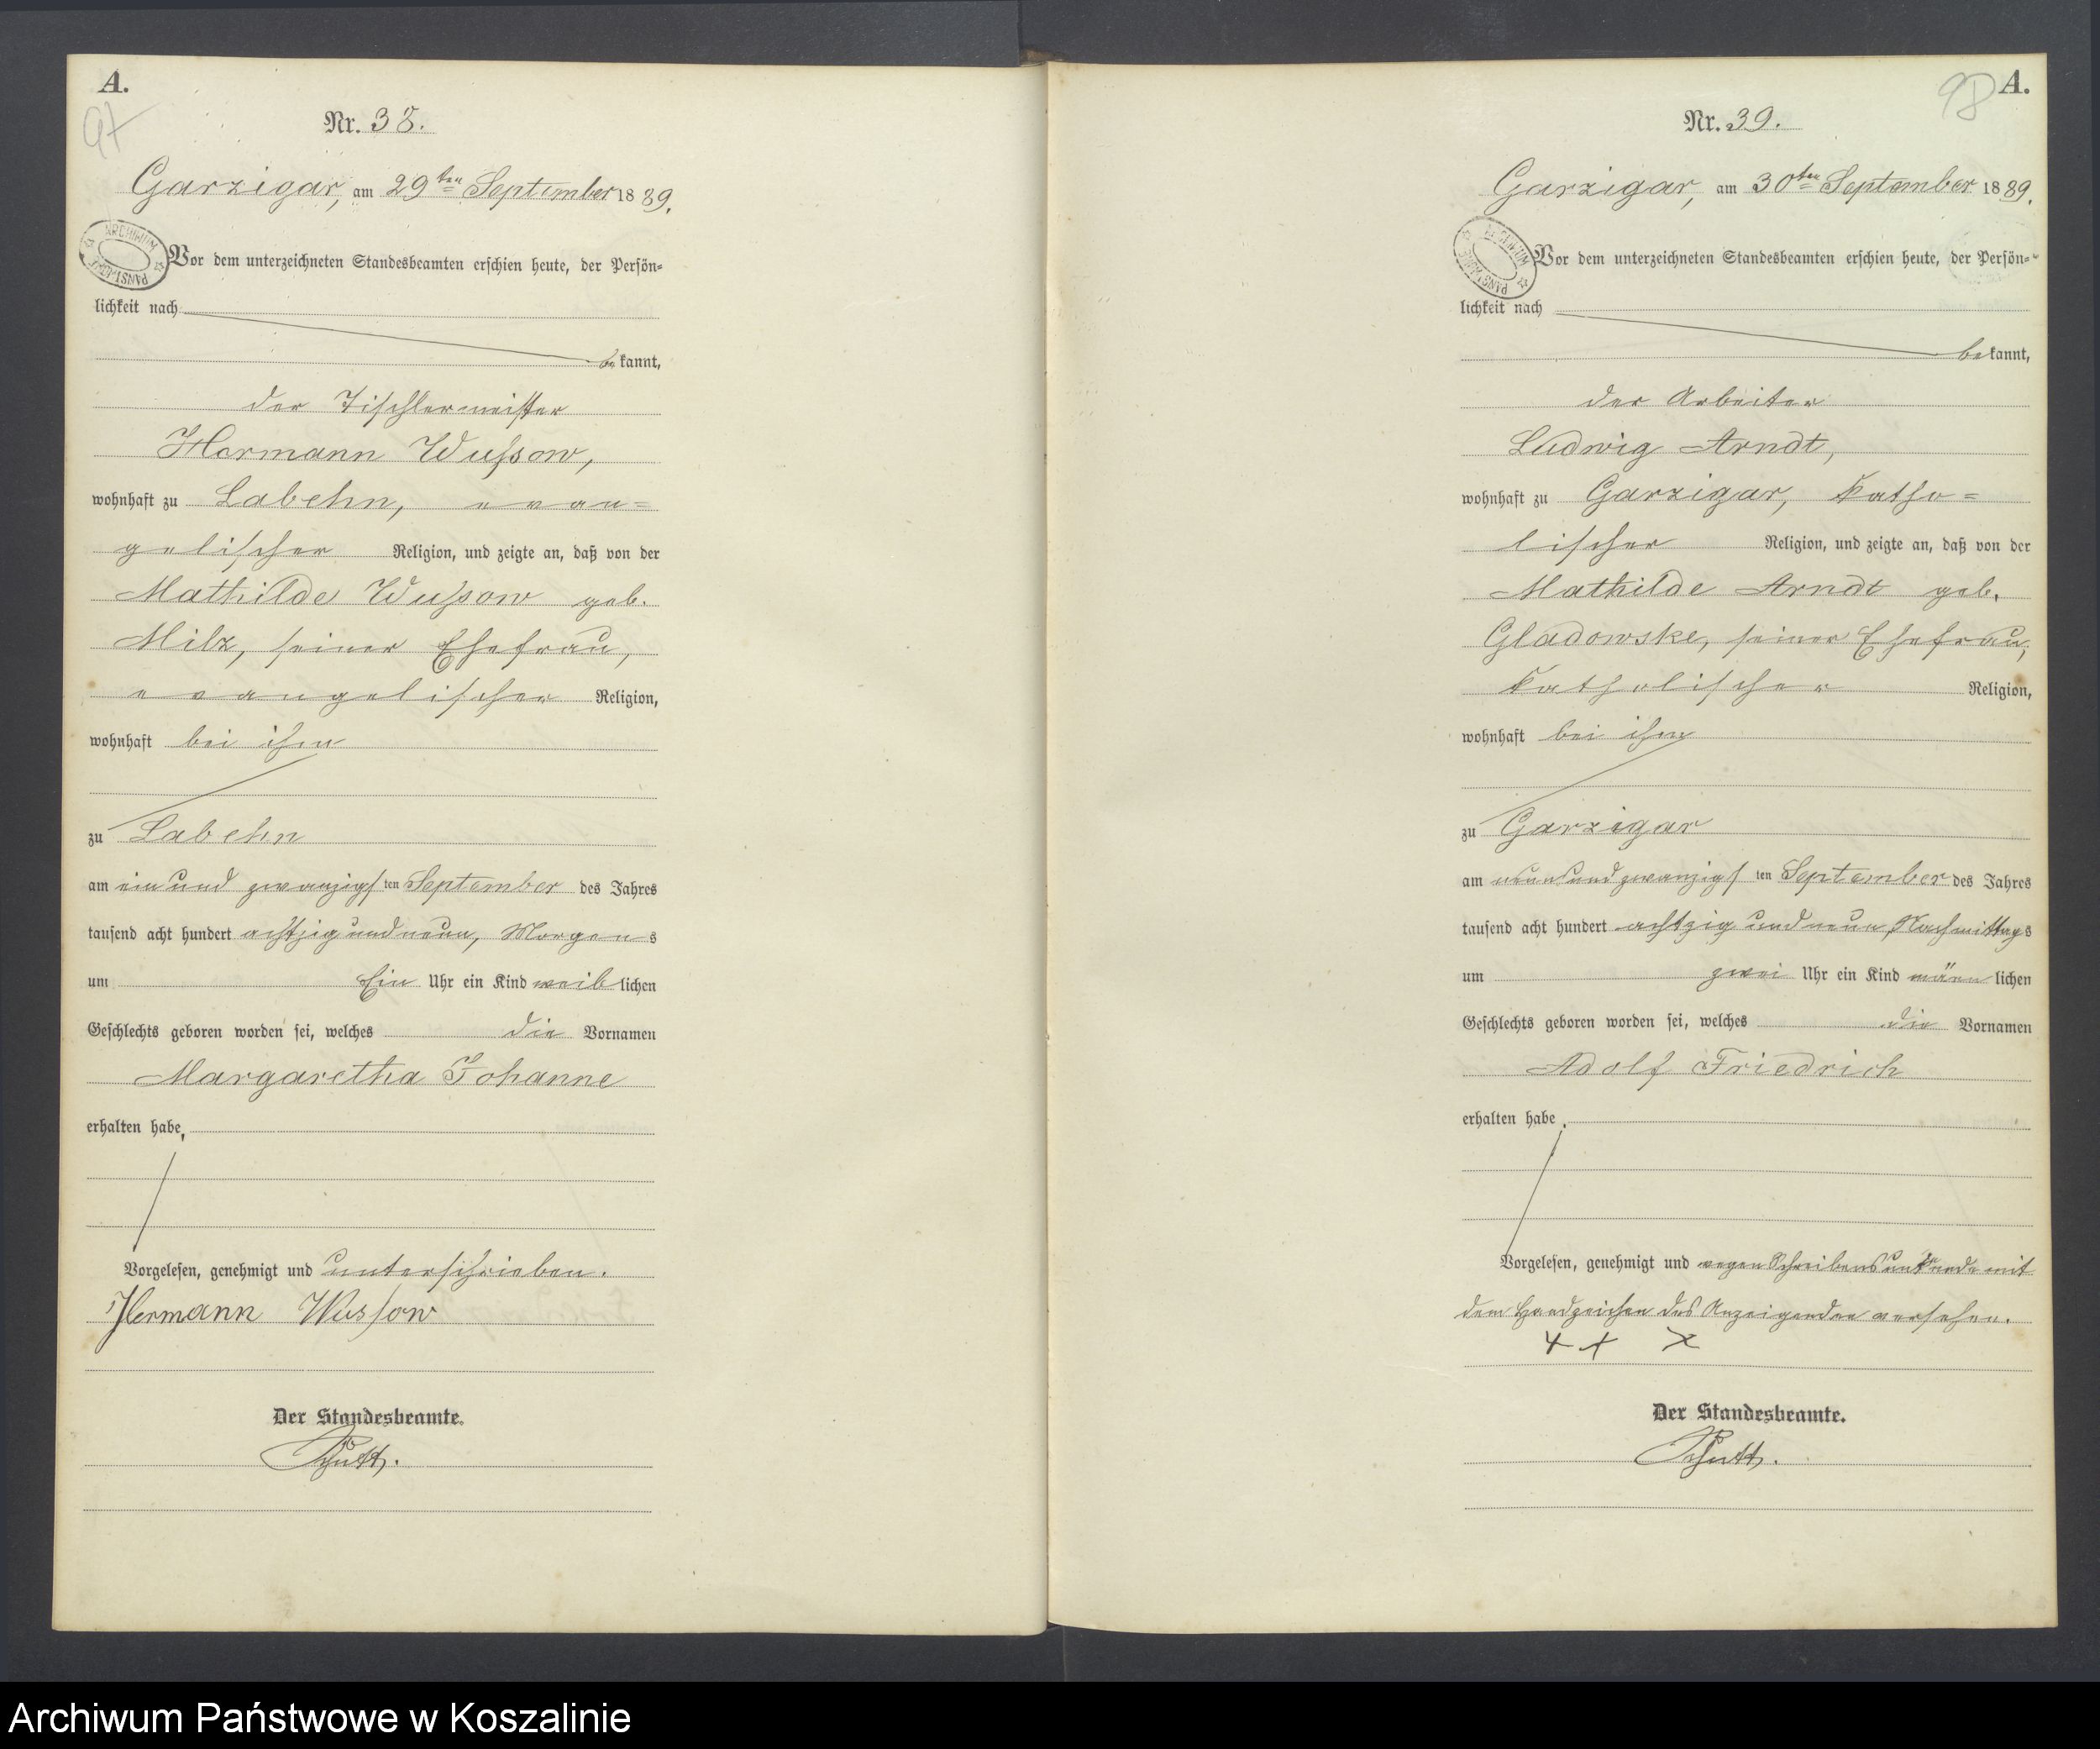 A.
97
Nr. 38.
Garzigar, am 29ten September 1889.
ARCHIWUM PAŃSTWOWE
Vor dem unterzeichneten Standesbeamten erschien heute, der Persön-
lichkeit nach
bekannt,
der Tischlermeister
Hermann Wussow,
wohnhaft zu Labehn, evan-
gelischer Religion, und zeigte an, daß von der
Mathilde Wussow geb.
Milz, seiner Ehefrau,
evangelischer Religion,
wohnhaft bei ihm
zu Labehn
am ein und zwanzigsten September des Jahres
tausend acht hundert achtzig und neun, Morgens
um Ein Uhr ein Kind weiblichen
Geschlechts geboren worden sei, welches die Vornamen
Margaretha Johanne
erhalten habe.
Vorgelesen, genehmigt und unterschrieben.
Hermann Wussow
Der Standesbeamte.
A.
98
Nr. 39.
Garzigar, am 30ten September 1889.
ARCHIWUM PAŃSTWOWE
Vor dem unterzeichneten Standesbeamten erschien heute, der Persön-
lichkeit nach
bekannt,
der Arbeiter
Ludwig Arndt,
wohnhaft zu Garzigar, katho-
lischer Religion, und zeigte an, daß von der
Mathilde Arndt geb.
Gladowske, seiner Ehefrau,
katholischer Religion,
wohnhaft bei ihm
zu Garzigar
am neun und zwanzigsten September des Jahres
tausend acht hundert achtzig und neun, Nachmittags
um zwei Uhr ein Kind männlichen
Geschlechts geboren worden sei, welches die Vornamen
Adolf Friedrich
erhalten habe.
Vorgelesen, genehmigt und wegen Schreibensunkunde mit
dem Handzeichen des Anzeigenden versehen.
+ + x
Der Standesbeamte.
Archiwum Państwowe w Koszalinie